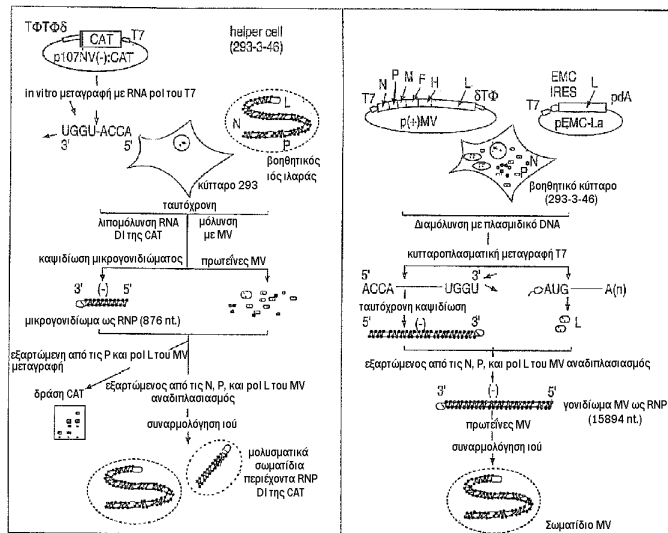 ΤΦΤΦδ
CAT
T7
p107NV(-):CAT
helper cell
(293-3-46)
in vitro μεταγραφή με RNA pol του T7
UGGU-ACCA
3' 5'
L
N
P
βοηθητικός
ιός ιλαράς
κύτταρο 293
ταυτόχρονη
λιπομόλυνση RNA
DI της CAT
μόλυνση
με MV
καψιδίωση μικρογονιδιώματος
πρωτεΐνες MV
3' (-) 5'
μικρογονιδίωμα ως RNP (876 nt.)
εξαρτώμενη από τις P και pol L του MV
μεταγραφή
δράση CAT
εξαρτώμενος από τις N, P, και pol L του MV
αναδιπλασιασμός
συναρμολόγηση ιού
μολυσματικά
σωματίδια
περιέχοντα RNP
DI της CAT
T7
N
P
M
F
H
L
δΤΦ
p(+)MV
EMC
IRES
L
pdA
T7
pEMC-La
N
P
βοηθητικό κύτταρο
(293-3-46)
Διαμόλυνση με πλασμιδικό DNA
κυτταροπλασματική μεταγραφή T7
5' 3'
ACCA UGGU
AUG A(n)
ταυτόχρονη καψιδίωση
5' (-) 3'
L
εξαρτώμενος από τις N, P, και pol L του MV αναδιπλασιασμός
3' (-) 5'
γονιδίωμα MV ως RNP
(15894 nt.)
πρωτεΐνες MV
συναρμολόγηση ιού
Σωματίδιο MV